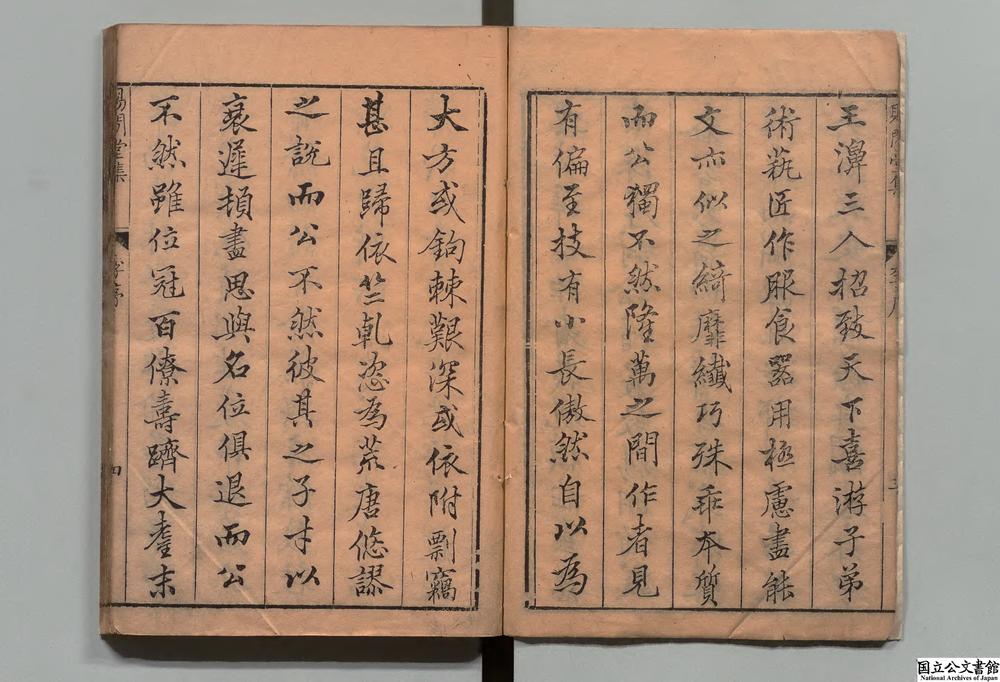 王濞三人招致天下喜游子弟
術埶匠作服食器用極慮盡能
文亦似之綺靡纖巧殊乖本質
而公獨不然隆萬之間作者見
有偏至技有小長傲然自以為
大方或鉤棘艱深或依附剽竊
甚且歸依竺乹恣為荒唐悠謬
之說而公不然彼其之子才以
衰遲頓盡思與名位俱退而公
不然雖位冠百僚壽躋大耋末
賜閒堂集
四
三
国立公文書館
National Archives of Japan